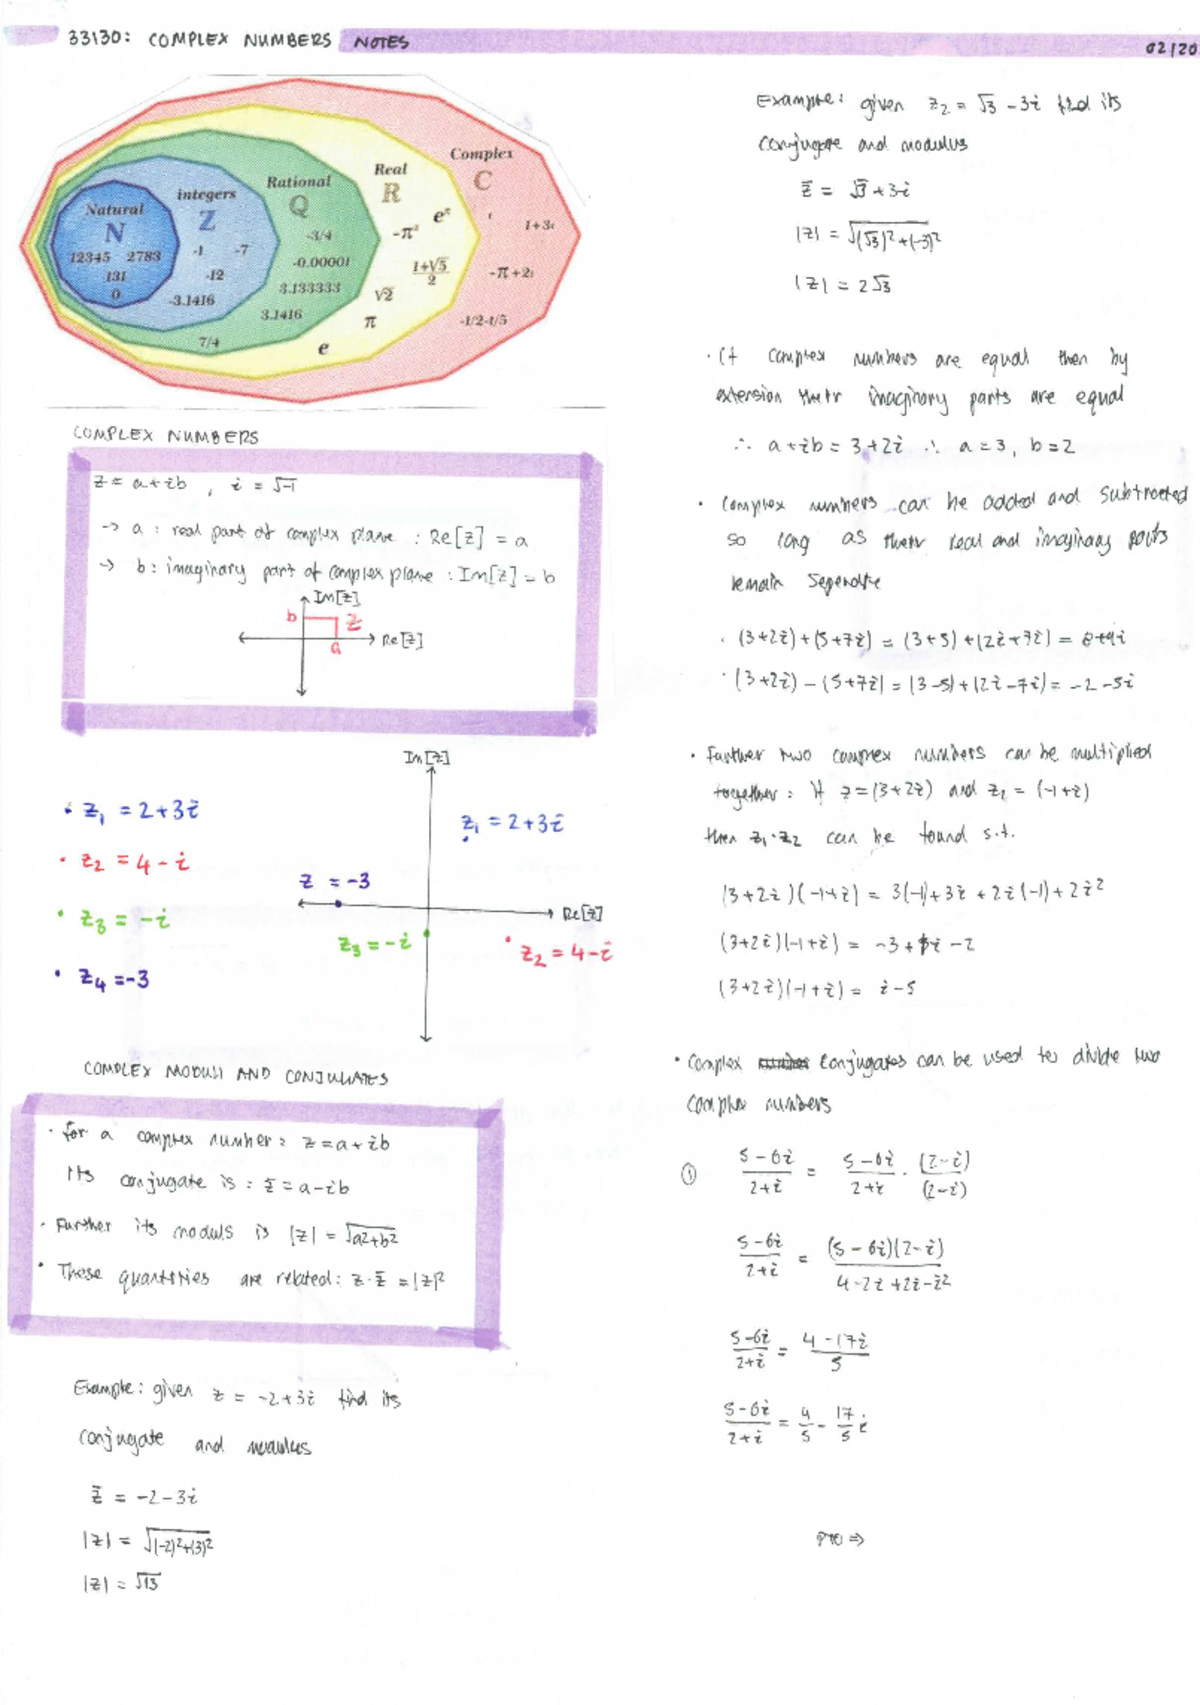 33130: COMPLEX NUMBERS NOTES
02/20
Natural
N
12345 2783
131
0
integers
Z
-1 -7
-12
-3.1416
7/4
Rational
Q
-3/4
-0.00001
3.133333
3.1416
e
Real
R
-π² eπ
1+√5
2
√2
π
Complex
C
i
1+3i
-π+2i
-1/2-i/5
COMPLEX NUMBERS
z = a+ib , i = √-1
→ a : real part of complex plane : Re[z] = a
→ b : imaginary part of complex plane : Im[z] = b
Im[z]
b z
Re[z]
a
• z₁ = 2+3i
• z₂ = 4-i
• z₃ = -i
• z₄ = -3
Im[z]
z₁ = 2+3i
z = -3
Re[z]
z₃ = -i
z₂ = 4-i
COMPLEX MODULI AND CONJUGATES
• for a complex number: z = a+ib
its conjugate is : z̄ = a-ib
• Further its moduls is |z| = √a²+b²
• These quantities are related: z·z̄ = |z|²
Example: given z = -2+3i find its
conjugate and modulus
z̄ = -2-3i
|z| = √(-2)²+(3)²
|z| = √13
Example: given z₂ = √3 - 3i find its
conjugate and modulus
z̄ = √3 + 3i
|z| = √(√3)²+(-3)²
|z| = 2√3
• If complex numbers are equal then by
extension their imaginary parts are equal
∴ a+ib = 3+2i ∴ a=3, b=2
• Complex numbers can be added and subtracted
so long as their real and imaginary parts
remain seperate
• (3+2i)+(5+7i) = (3+5)+(2i+7i) = 8+9i
• (3+2i)-(5+7i) = (3-5)+(2i-7i) = -2-5i
• Further two complex numbers can be multiplied
together: if z=(3+2i) and z₂=(-1+i)
then z₁·z₂ can be found s.t.
(3+2i)(-1+i) = 3(-1)+3i+2i(-1)+2i²
(3+2i)(-1+i) = -3+i-2
(3+2i)(-1+i) = i-5
• Complex conjugates can be used to divide two
complex numbers
① 5-6i/2+i = 5-6i/2+i · (2-i)/(2-i)
5-6i/2+i = (5-6i)(2-i)/4-2i+2i-i²
5-6i/2+i = 4-17i/5
5-6i/2+i = 4/5 - 17/5 i
PTO ⇒